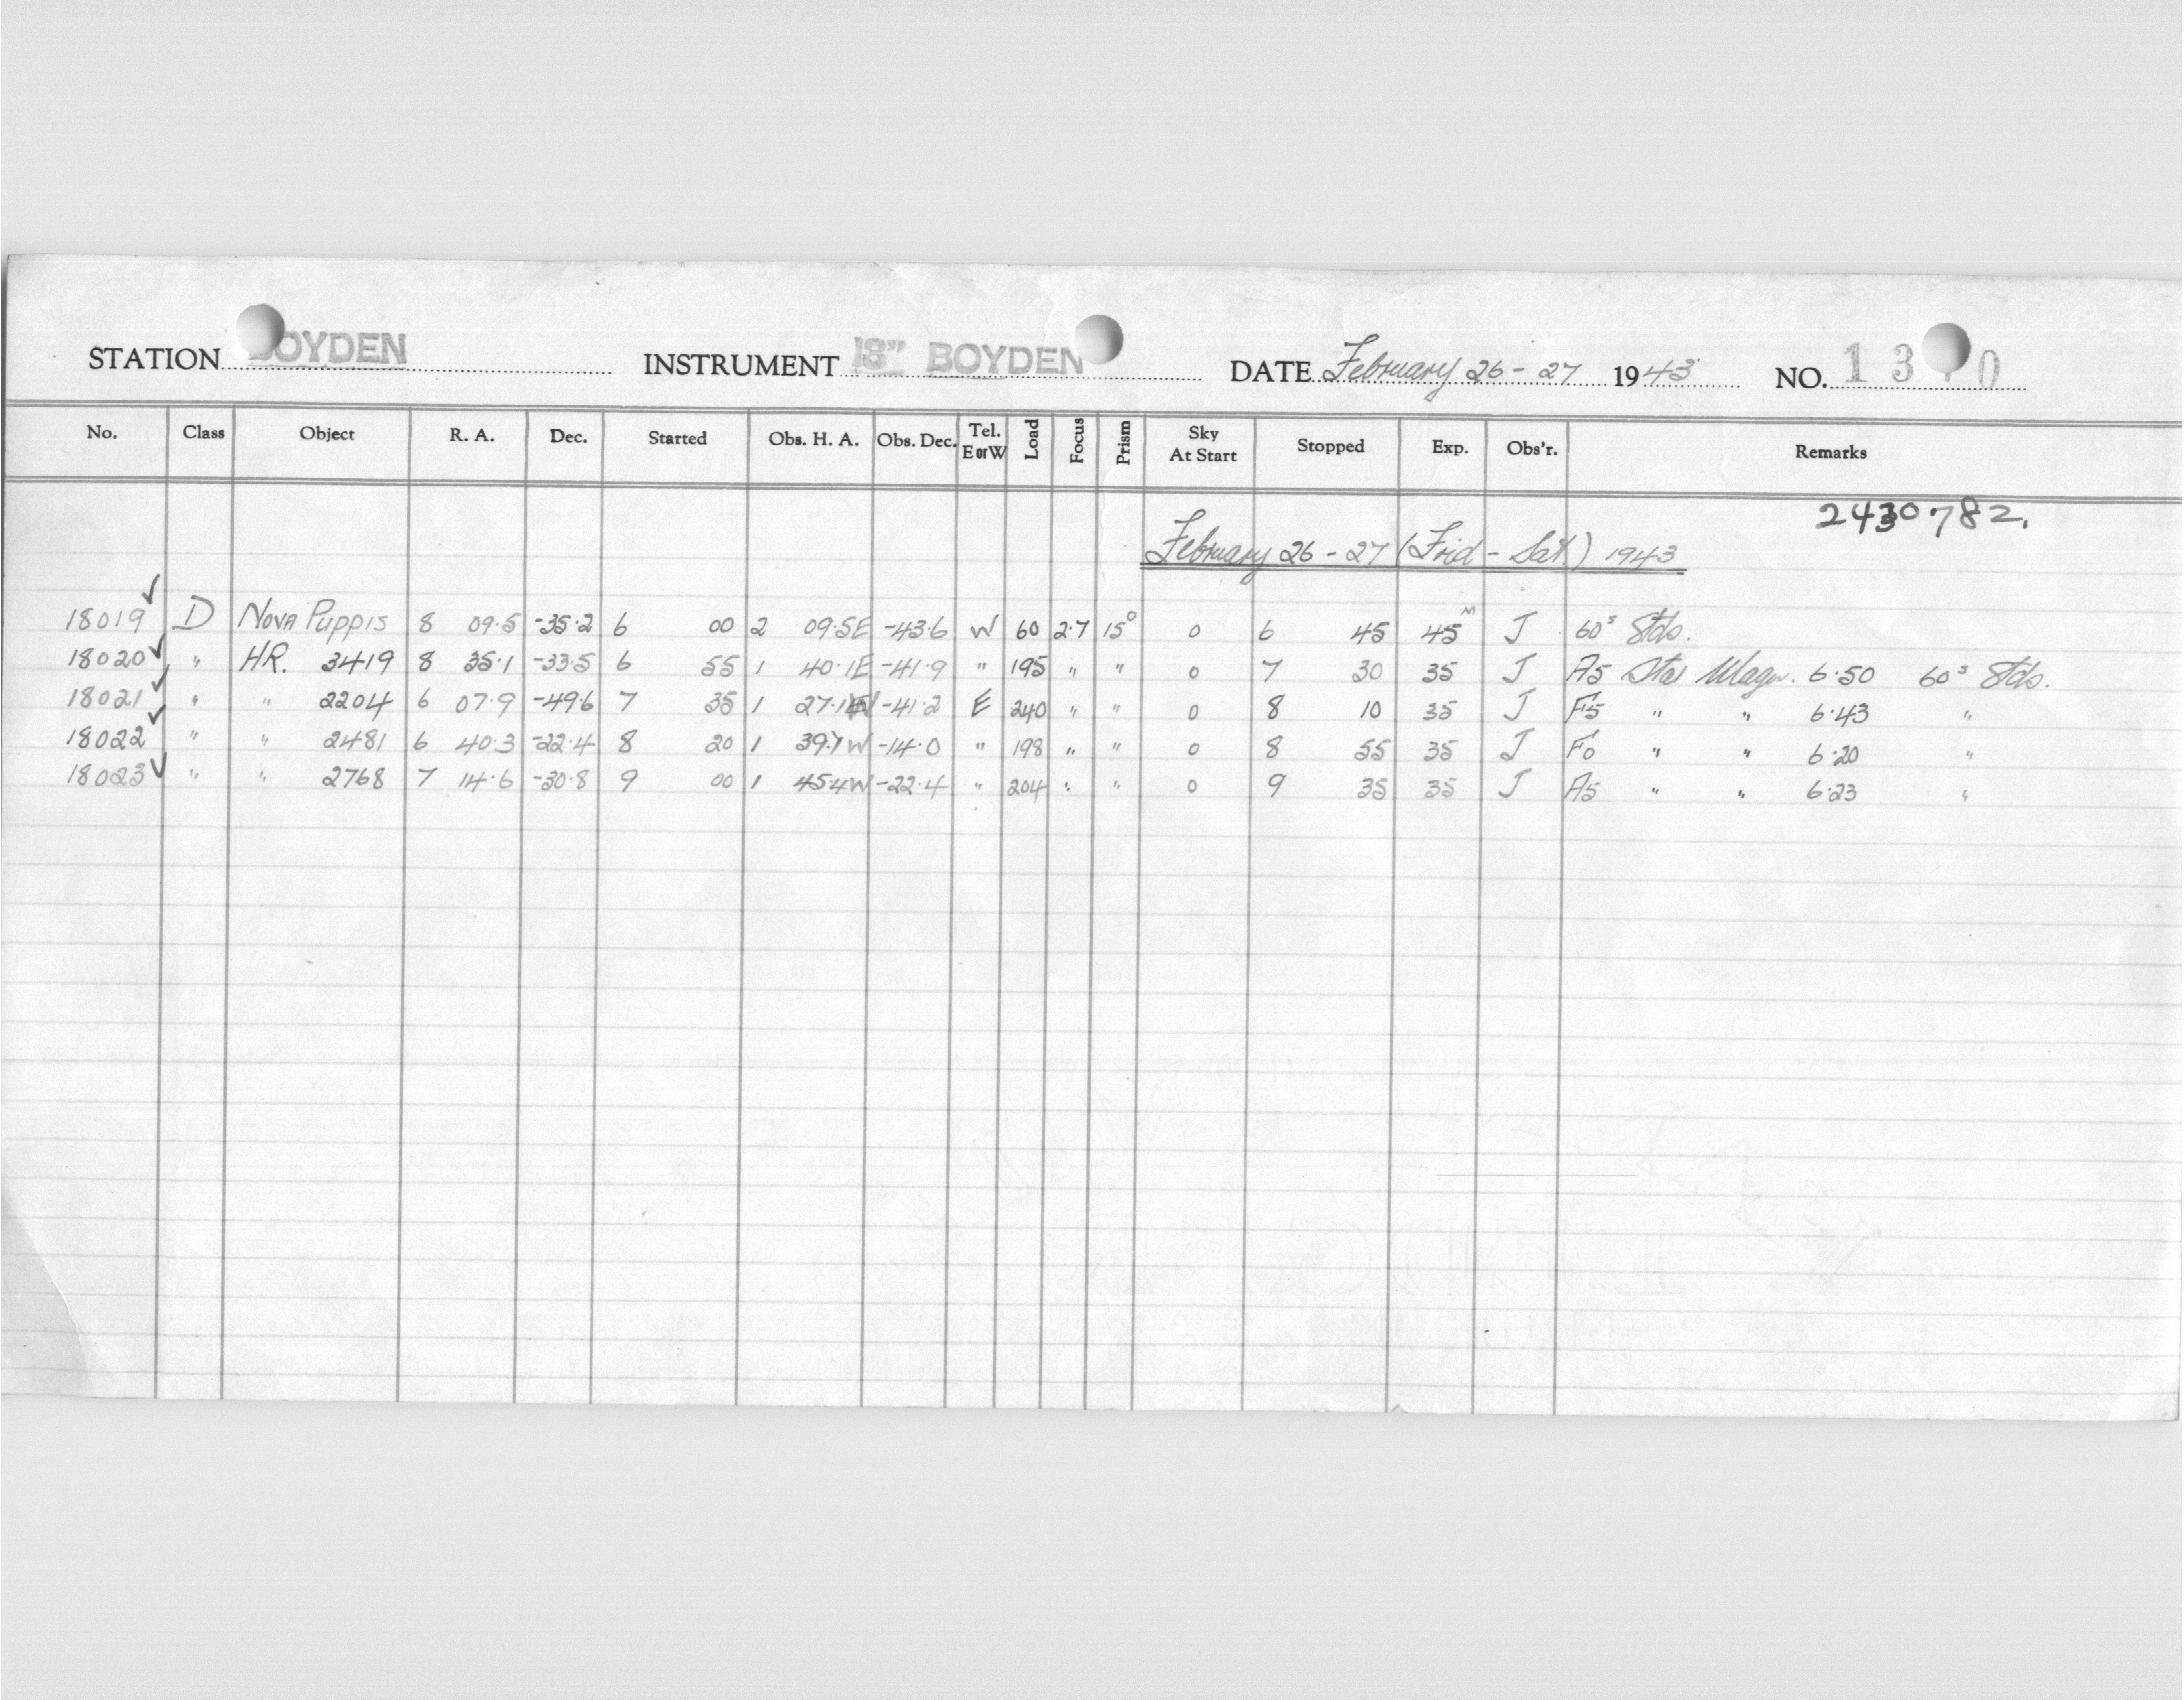 STATION BOYDEN INSTRUMENT 18" BOYDEN DATE February 26-27 1943 NO. 13 0
No. Class Object R. A. Dec. Started Obs. H. A. Obs. Dec. Tel. E or W Load Focus Prism Sky At Start Stopped Exp. Obs'r. Remarks
2430782.
February 26-27 (Frid - Sat.) 1943
18019 ✓ D NOVA PUPPIS 8 09.5 -35.2 6 00 2 09.5E -43.6 W 60 2.7 15° 0 6 45 45ᵐ J 60ˢ Stds.
18020 ✓ " HR. 3419 8 35.1 -33.5 6 55 1 40.1E -41.9 " 195 " " 0 7 30 35 J A5 Star Magn. 6.50 60ˢ Stds.
18021 ✓ " " 2204 6 07.9 -49.6 7 35 1 27.1W -41.2 E 240 " " 0 8 10 35 J F5 " " 6.43 "
18022 ✓ " " 2481 6 40.3 -22.4 8 20 1 39.7W -14.0 " 198 " " 0 8 55 35 J F0 " " 6.20 "
18023 ✓ " " 2768 7 14.6 -30.8 9 00 1 45.4W -22.4 " 204 " " 0 9 35 35 J A5 " " 6.23 "